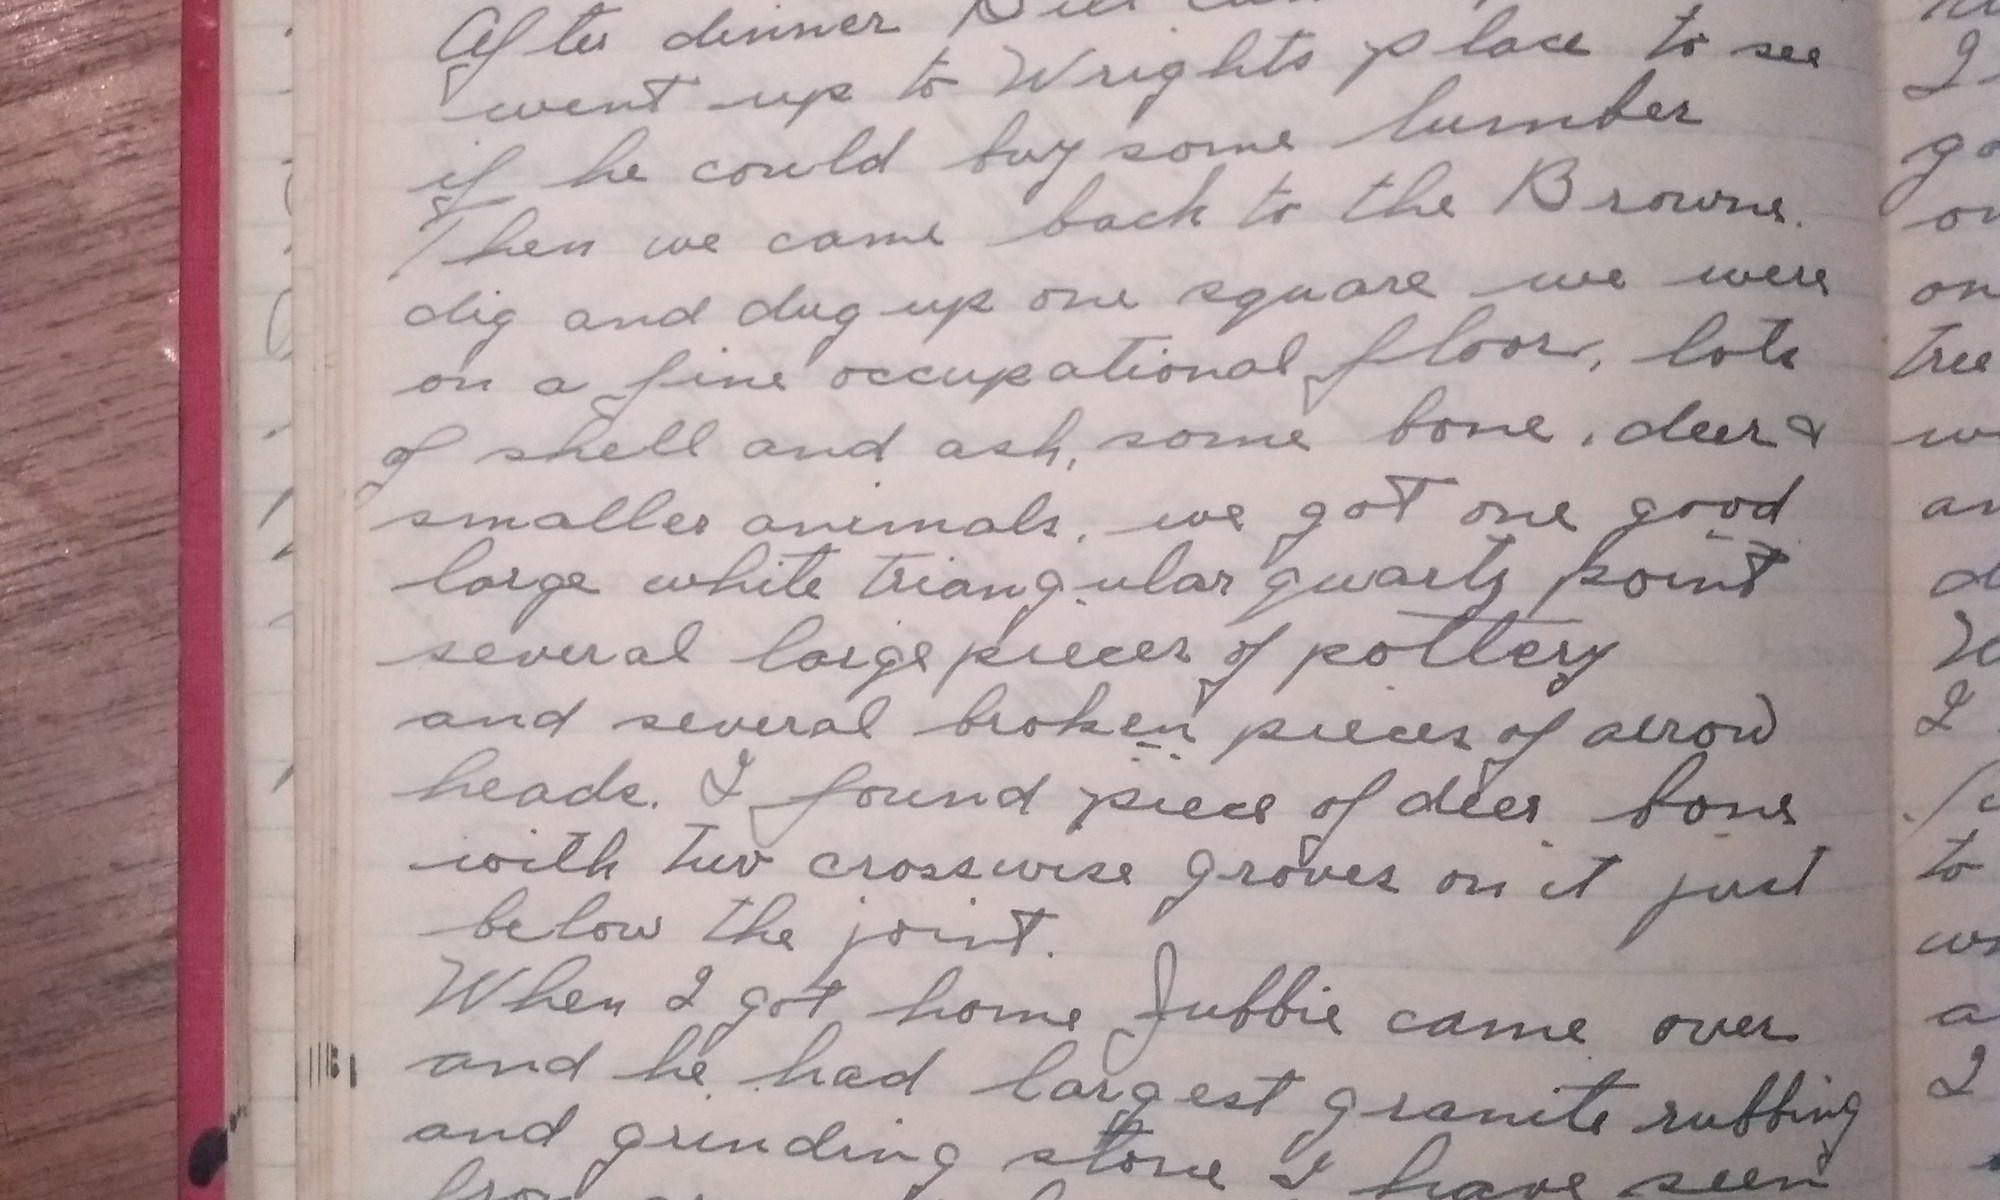 After dinner Bill
went up to Wrights place to see
if he could buy some lumber
Then we came back to the Browns.
dig and dug up one square we were
on a fine occupational floor, lots
of shell and ash, some bone, deer &
smaller animals, we got one good
large white triangular quarts point
several large pieces of pottery
and several broken pieces of arrow
heads. I found piece of deer bone
with two crosswise groves on it just
below the joint.
When I got home Jubbie came over
and he had largest granite rubbing
and grinding stone I have seen